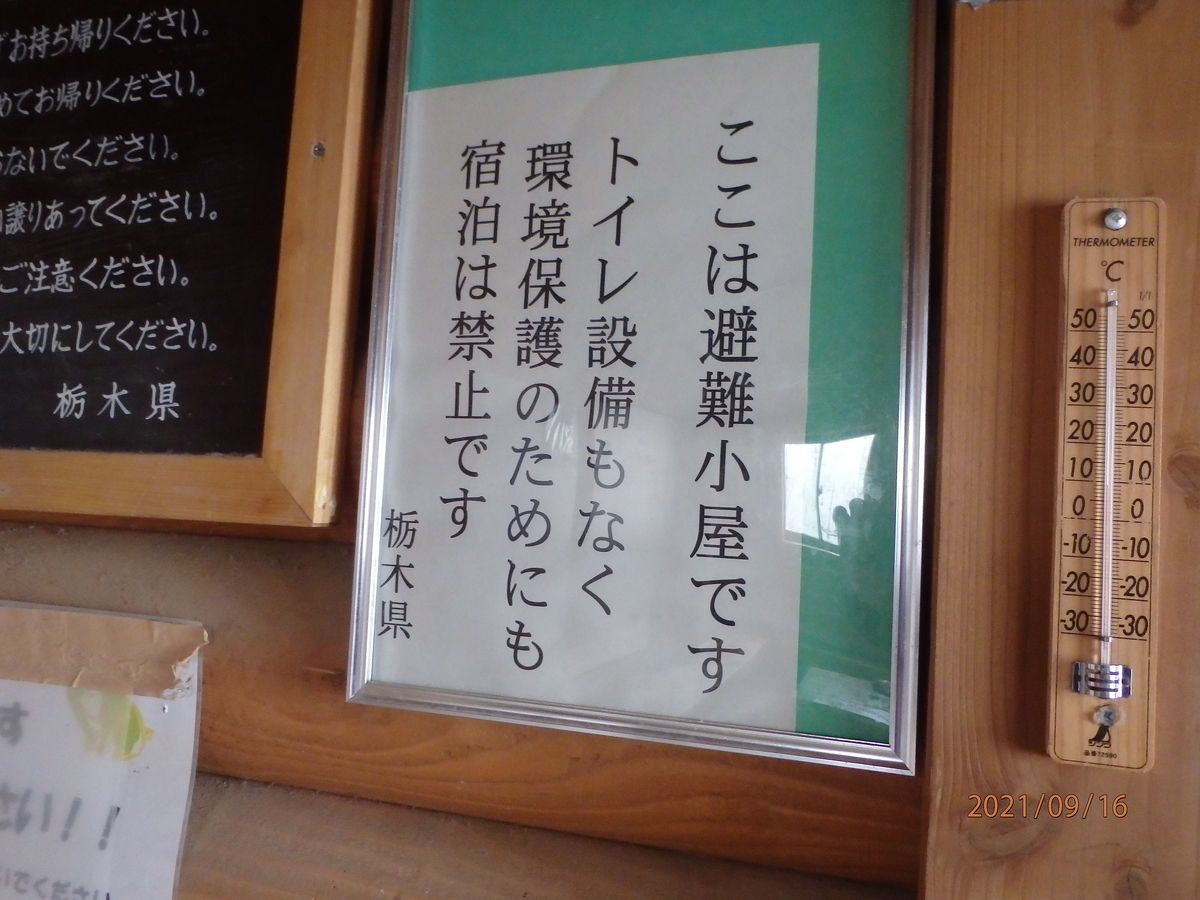 お持ち帰りください。
めてお帰りください。
ないでください。
譲りあってください。
ご注意ください。
大切にしてください。
栃木県
ここは避難小屋です
トイレ設備もなく
環境保護のためにも
宿泊は禁止です
栃木県
THERMOMETER
℃
50 50
40 40
30 30
20 20
10 10
0 0
-10 -10
-20 -20
-30 -30
す
！！
2021/09/16